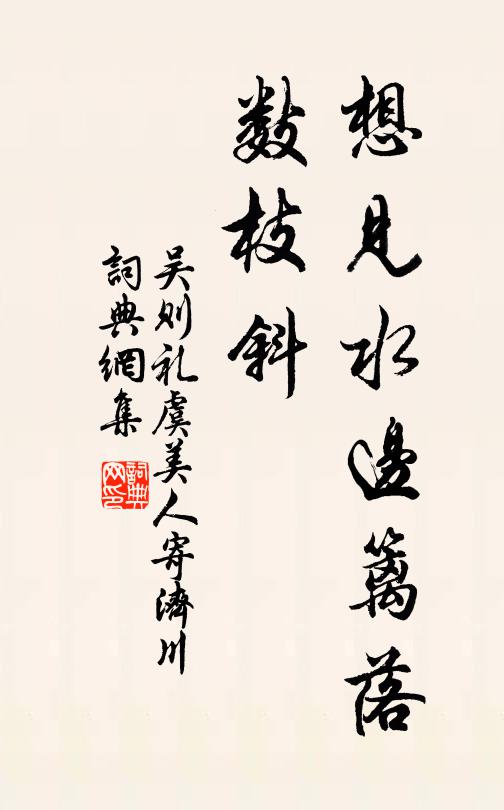 想見水邊篱落
數枝斜
吴则礼虞美人寄濟川
詞典網集
詞典網印